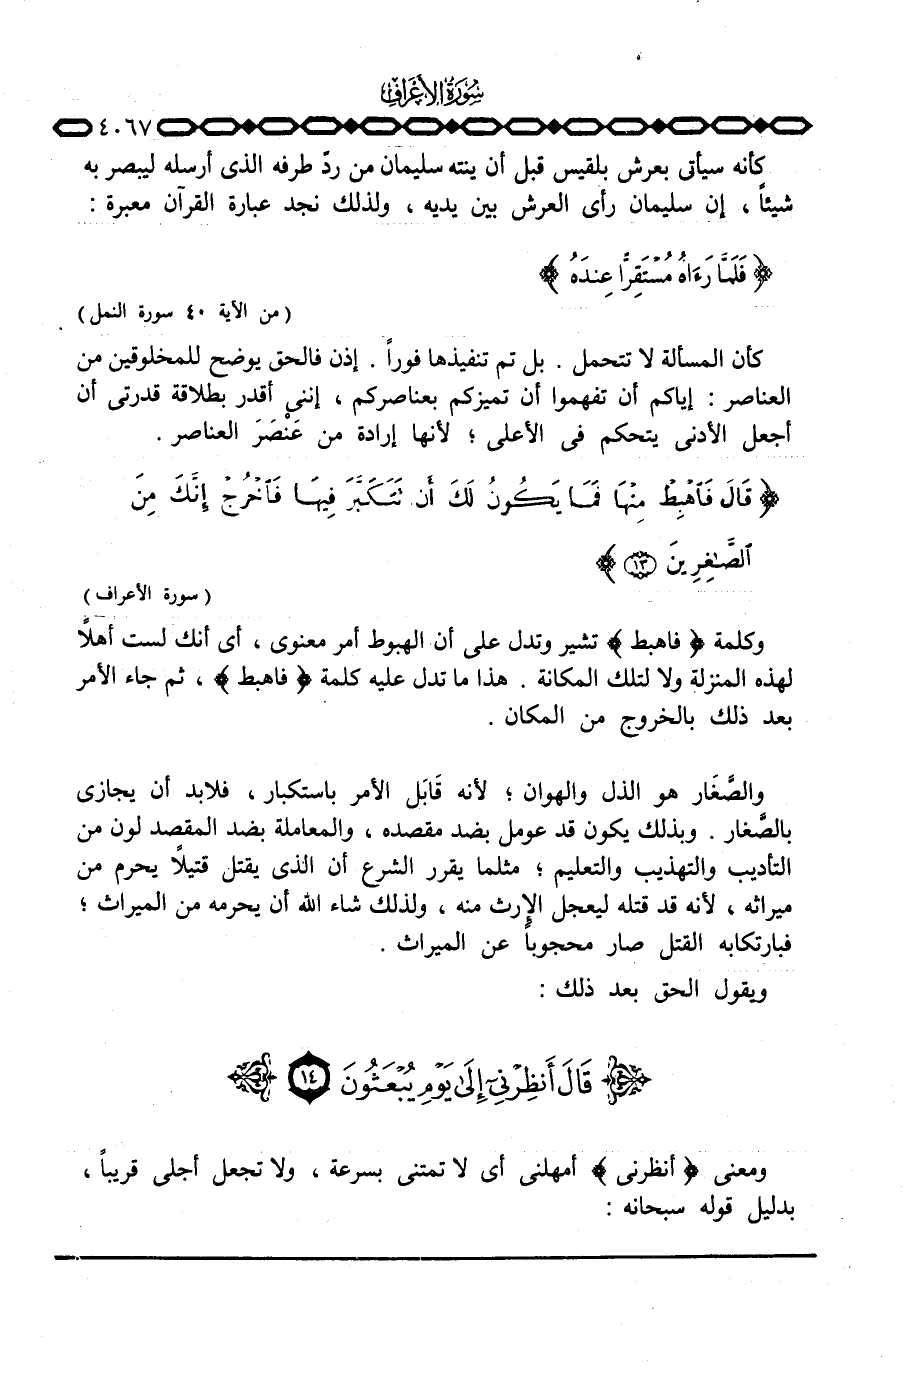 سورة الأعراف
٤٠٦٧
كأنه سيأتى بعرش بلقيس قبل أن ينته سليمان من ردّ طرفه الذى أرسله ليبصر به
شيئاً ، إن سليمان رأى العرش بين يديه ، ولذلك نجد عبارة القرآن معبرة :
﴿ فَلَمَّا رَءَاهُ مُسْتَقِرًّا عِندَهُ ﴾
( من الآية ٤٠ سورة النمل )
كأن المسألة لا تتحمل . بل تم تنفيذها فوراً . إذن فالحق يوضح للمخلوقين من
العناصر : إياكم أن تفهموا أن تميزكم بعناصركم ، إننى أقدر بطلاقة قدرتى أن
أجعل الأدنى يتحكم فى الأعلى ؛ لأنها إرادة من عَنْصَرَ العناصر .
﴿ قَالَ فَٱهْبِطْ مِنْهَا فَمَا يَكُونُ لَكَ أَن تَتَكَبَّرَ فِيهَا فَٱخْرُجْ إِنَّكَ مِنَ
ٱلصَّٰغِرِينَ ١٣ ﴾
( سورة الأعراف )
وكلمة ﴿ فاهبط ﴾ تشير وتدل على أن الهبوط أمر معنوى ، أى أنك لست أهلًا
لهذه المنزلة ولا لتلك المكانة . هذا ما تدل عليه كلمة ﴿ فاهبط ﴾ ، ثم جاء الأمر
بعد ذلك بالخروج من المكان .
والصَّغَار هو الذل والهوان ؛ لأنه قَابَل الأمر باستكبار ، فلابد أن يجازى
بالصَّغار . وبذلك يكون قد عومل بضد مقصده ، والمعاملة بضد المقصد لون من
التأديب والتهذيب والتعليم ؛ مثلما يقرر الشرع أن الذى يقتل قتيلًا يحرم من
ميراثه ، لأنه قد قتله ليعجل الإرث منه ، ولذلك شاء الله أن يحرمه من الميراث ؛
فبارتكابه القتل صار محجوباً عن الميراث .
ويقول الحق بعد ذلك :
﴿ قَالَ أَنظِرْنِىٓ إِلَىٰ يَوْمِ يُبْعَثُونَ ١٤ ﴾
ومعنى ﴿ أنظرنى ﴾ أمهلنى أى لا تمتنى بسرعة ، ولا تجعل أجلى قريباً ،
بدليل قوله سبحانه :